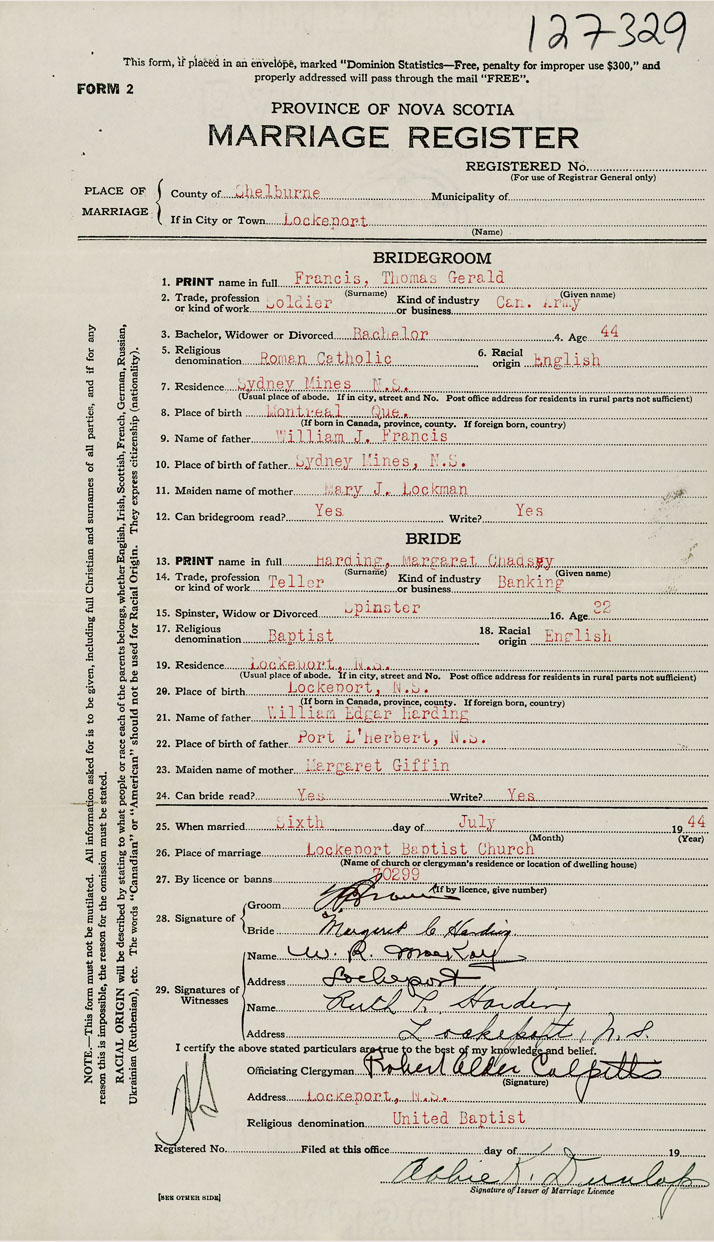 127329
This form, if placed in an envelope, marked "Dominion Statistics—Free, penalty for improper use $300," and
properly addressed will pass through the mail "FREE".
FORM 2
PROVINCE OF NOVA SCOTIA
MARRIAGE REGISTER
REGISTERED No.
(For use of Registrar General only)
PLACE OF MARRIAGE
County of Shelburne Municipality of
If in City or Town Lockeport
(Name)
BRIDEGROOM
1. PRINT name in full Francis, Thomas Gerald
(Surname) (Given name)
2. Trade, profession or kind of work Soldier Kind of industry or business Can. Army
3. Bachelor, Widower or Divorced Bachelor 4. Age 44
5. Religious denomination Roman Catholic 6. Racial origin English
7. Residence Sydney Mines N.S.
(Usual place of abode. If in city, street and No. Post office address for residents in rural parts not sufficient)
8. Place of birth Montreal Que.
(If born in Canada, province, county. If foreign born, country)
9. Name of father William J. Francis
10. Place of birth of father Sydney Mines, N.S.
11. Maiden name of mother Mary J. Lockman
12. Can bridegroom read? Yes Write? Yes
BRIDE
13. PRINT name in full Harding, Margaret Chadsey
(Surname) (Given name)
14. Trade, profession or kind of work Teller Kind of industry or business Banking
15. Spinster, Widow or Divorced Spinster 16. Age 22
17. Religious denomination Baptist 18. Racial origin English
19. Residence Lockeport, N.S.
(Usual place of abode. If in city, street and No. Post office address for residents in rural parts not sufficient)
20. Place of birth Lockeport, N.S.
(If born in Canada, province, county. If foreign born, country)
21. Name of father William Edgar Harding
22. Place of birth of father Port L'herbert, N.S.
23. Maiden name of mother Margaret Giffin
24. Can bride read? Yes Write? Yes
25. When married Sixth day of July 19 44
(Month) (Year)
26. Place of marriage Lockeport Baptist Church
(Name of church or clergyman's residence or location of dwelling house)
27. By licence or banns 70299
(If by licence, give number)
28. Signature of
Groom
Bride Margaret C Harding
29. Signatures of Witnesses
Name W. R. MacKay
Address Lockeport
Name Ruth P. Harding
Address Lockeport, N.S.
I certify the above stated particulars are true to the best of my knowledge and belief.
Officiating Clergyman Robert Alder Colpitts
(Signature)
Address Lockeport, N.S.
Religious denomination United Baptist
Registered No. Filed at this office day of 19
Abbie K. Dunlop
Signature of Issuer of Marriage Licence
[SEE OTHER SIDE]
NOTE.—This form must not be mutilated. All information asked for is to be given, including full Christian and surnames of all parties, and if for any
reason this is impossible, the reason for the omission must be stated.
RACIAL ORIGIN will be described by stating to what people or race each of the parents belongs, whether English, Irish, Scottish, French, German, Russian,
Ukrainian (Ruthenian), etc. The words "Canadian" or "American" should not be used for Racial Origin. They express citizenship (nationality).